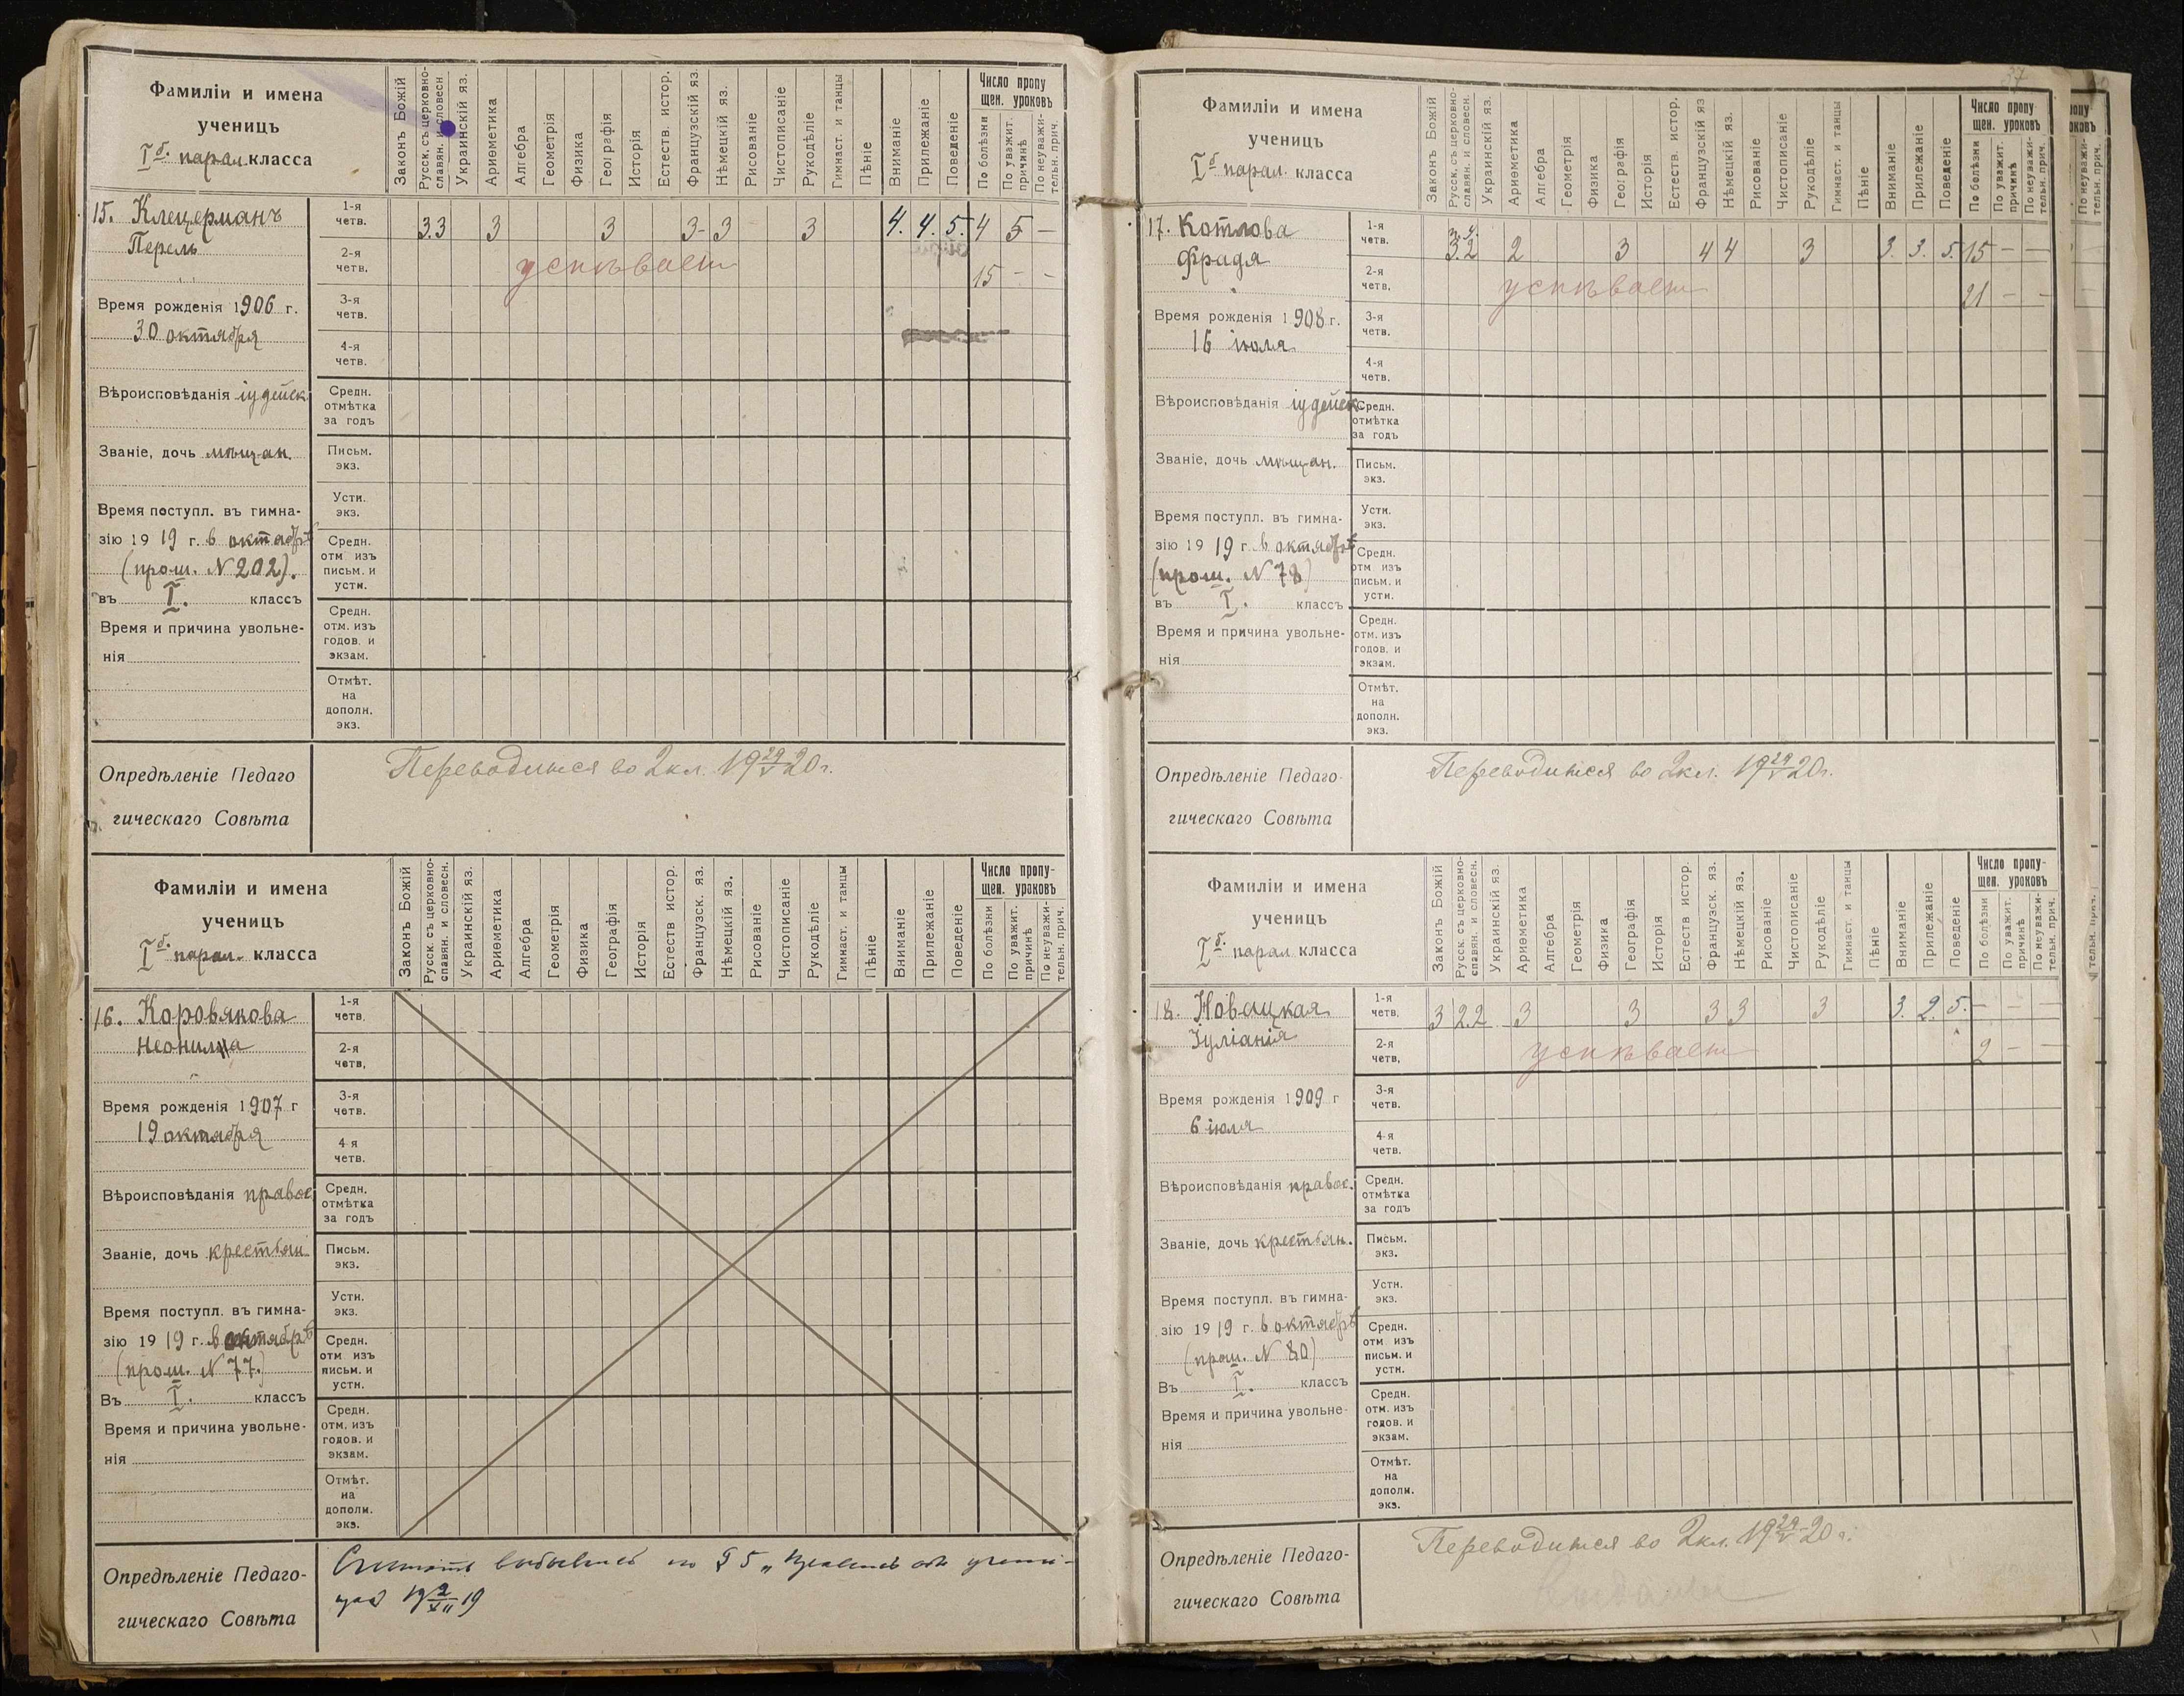 Фамиліи и имена
ученицъ
Iб. парал. класса
Законъ Божій
Русск. съ церковно-
славян. и словесн.
Украинскій яз.
Ариѳметика
Алгебра
Геометрія
Физика
Географія
Исторія
Естеств. истор.
Французскій яз.
Нѣмецкій яз.
Рисованіе
Чистописаніе
Рукодѣліе
Гимнаст. и танцы
Пѣніе
Вниманіе
Прилежаніе
Поведеніе
Число пропу
щен. уроковъ
По болѣзни
По уважит.
причинѣ
По неуважи-
тельн. прич.
15. Клецерманъ
Перель
Время рожденія 1906 г.
30 октября
Вѣроисповѣданія іудейск.
Званіе, дочь мѣщан.
Время поступл. въ гимна-
зію 1919 г. в октябрѣ
(прош. N 202).
въ I. классъ
Время и причина увольне-
нія
1-я
четв.
3.3 3 3 3- 3 3 4. 4. 5. 4 5 —
2-я
четв.
успѣвает
15 - -
3-я
четв.
4-я
четв.
Средн.
отмѣтка
за годъ
Письм.
экз.
Устн.
экз.
Средн.
отм изъ
письм. и
устн.
Средн.
отм. изъ
годов. и
экзам.
Отмѣт.
на
дополн.
экз.
Опредѣленіе Педаго
гическаго Совѣта
Переводится во 2 кл. 19 29/V 20 г.
Фамиліи и имена
ученицъ
Iб. парал. класса
Законъ Божій
Русск. съ церковно-
славян. и словесн.
Украинскій яз.
Ариѳметика
Алгебра
Геометрія
Физика
Географія
Исторія
Естеств истор.
Французск. яз.
Нѣмецкій яз.
Рисованіе
Чистописаніе
Рукодѣліе
Гимнаст. и танцы
Пѣніе
Вниманіе
Прилежаніе
Поведеніе
Число пропу-
щен. уроковъ
По болѣзни
По уважит.
причинѣ
По неуважи-
тельн. прич.
16. Коровякова
Неонилла
Время рожденія 1907 г
19 октября
Вѣроисповѣданія правос
Званіе, дочь крестьян
Время поступл. въ гимна-
зію 1919 г. в октябрѣ
(прош. N 77.)
Въ I. классъ
Время и причина увольне-
нія
1-я
четв.
2-я
четв.
3-я
четв.
4-я
четв.
Средн.
отмѣтка
за годъ
Письм.
экз.
Устн.
экз.
Средн.
отм изъ
письм. и
устн.
Средн.
отм. изъ
годов. и
экзам.
Отмѣт.
на
дополн.
экз.
Опредѣленіе Педаго-
гическаго Совѣта
Считать выбывшей по § 5 „
19 2/XII 19
37
Фамиліи и имена
ученицъ
Iб парал. класса
Законъ Божій
Русск. съ церковно-
славян. и словесн.
Украинскій яз.
Ариѳметика
Алгебра
Геометрія
Физика
Географія
Исторія
Естеств. истор.
Французскій яз
Нѣмецкій яз.
Рисованіе
Чистописаніе
Рукодѣліе
Гимнаст. и танцы
Пѣніе
Вниманіе
Прилежаніе
Поведеніе
Число пропу
щен. уроковъ
По болѣзни
По уважит.
причинѣ
По неуважи-
тельн. прич.
17. Котлова
Фрадя
Время рожденія 1908 г.
16 іюля
Вѣроисповѣданія іудейск.
Званіе, дочь мѣщан.
Время поступл. въ гимна-
зію 1919 г. в октябрѣ
(прош. N 78)
въ I. классъ
Время и причина увольне-
нія
1-я
четв.
3.2 2 3 4 4 3 3. 3. 5. 15 — —
2-я
четв.
успѣвает
21 - -
3-я
четв.
4-я
четв.
Средн.
отмѣтка
за годъ
Письм.
экз.
Устн.
экз.
Средн.
отм изъ
письм. и
устн.
Средн.
отм. изъ
годов. и
экзам.
Отмѣт.
на
дополн.
экз.
Опредѣленіе Педаго-
гическаго Совѣта
Переводится во 2 кл. 19 29/V 20 г.
Фамиліи и имена
ученицъ
Iб. парал класса
Законъ Божій
Русск. съ церковно-
славян. и словесн.
Украинскій яз.
Ариѳметика
Алгебра
Геометрія
Физика
Географія
Исторія
Естеств истор.
Французск. яз.
Нѣмецкій яз.
Рисованіе
Чистописаніе
Рукодѣліе
Гимнаст. и танцы
Пѣніе
Вниманіе
Прилежаніе
Поведеніе
Число пропу-
щен. уроковъ
По болѣзни
По уважит.
причинѣ
По неуважи-
тельн. прич.
18. Новацкая
Іуліанія
Время рожденія 1909 г
6 іюля
Вѣроисповѣданія правос.
Званіе, дочь крестьян.
Время поступл. въ гимна-
зію 1919 г. в октябрѣ
(прош. N 80)
Въ I. классъ
Время и причина увольне-
нія
1-я
четв.
3 2.2 3 3 3 3 3 3. 2. 5. — — —
2-я
четв.
успѣвает
2 - -
3-я
четв.
4-я
четв.
Средн.
отмѣтка
за годъ
Письм.
экз.
Устн.
экз.
Средн.
отм изъ
письм. и
устн.
Средн.
отм. изъ
годов. и
экзам.
Отмѣт.
на
дополн.
экз.
Опредѣленіе Педаго-
гическаго Совѣта
Переводится во 2 кл. 19 29/V 20 г.